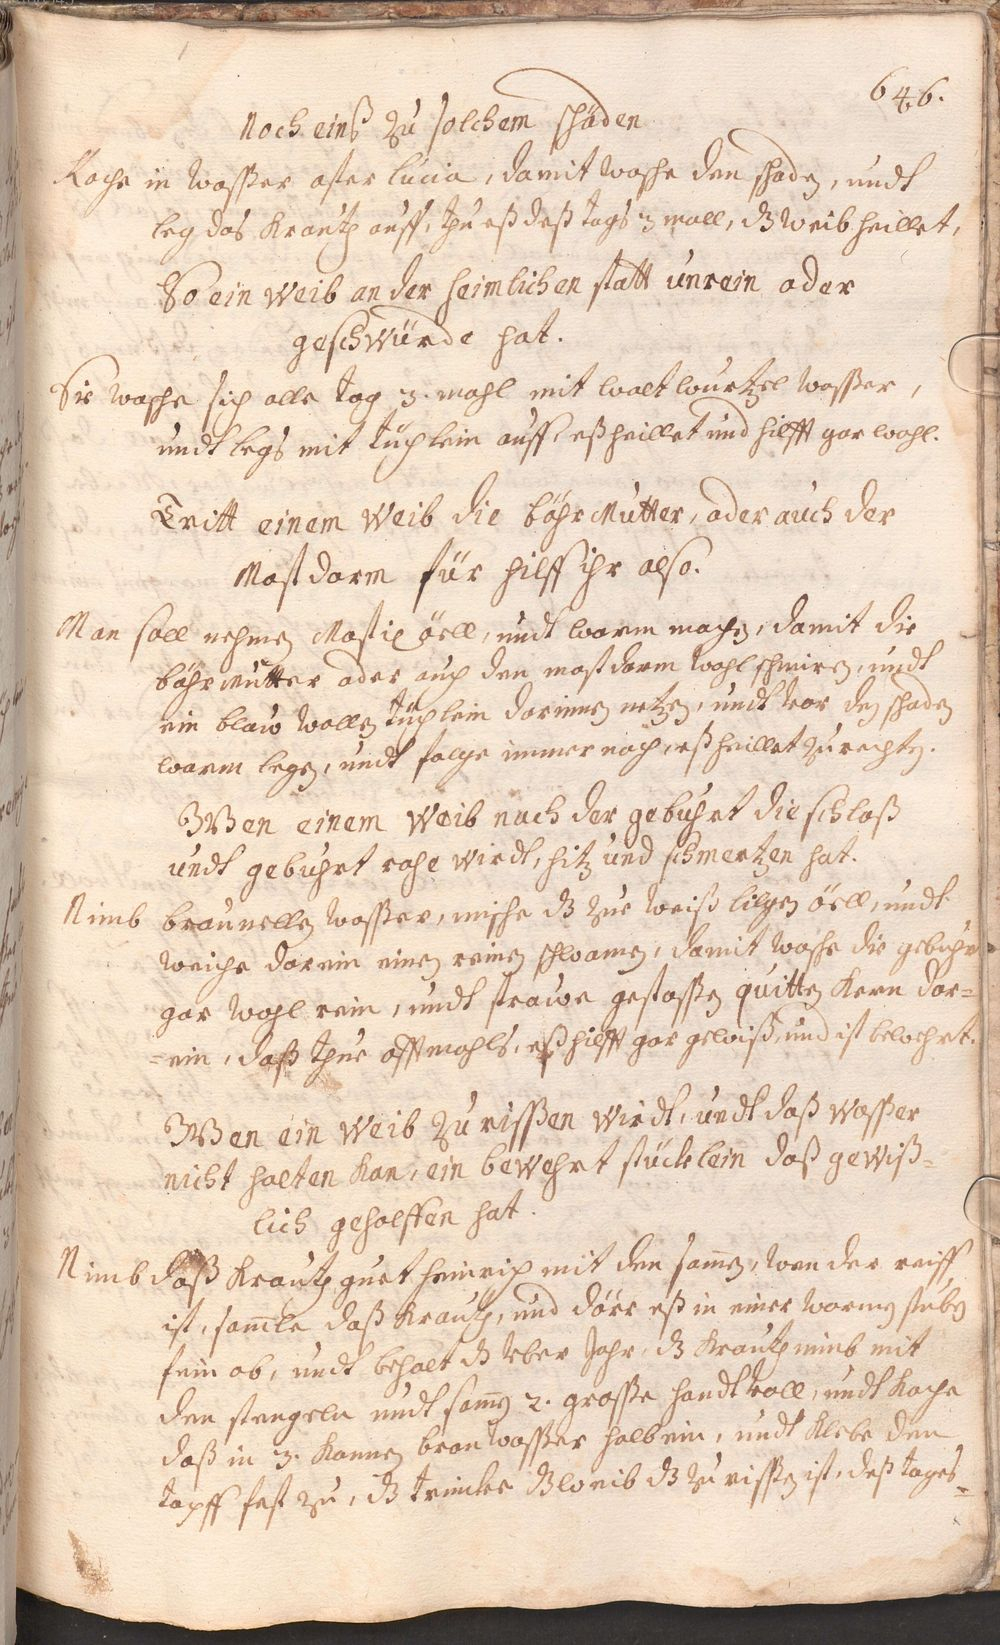 646.
Noch einß zu solchem schäden
Koche in waßer after lucia, damit wasche den schaden, undt
leg das Krauth auff, thu eß deß tags 3 mall, dz weib heillet,
So ein weib an der heimlichen statt unrein oder
geschwürde hat.
Sie wasche sich alle tag 3. mahl mit waltwurtzel waßer,
undt legs mit tüchlein auff, eß heillet und hilfft gar wohl.
Tritt einem weib die bährmutter, oder auch der
Mastdarm für hilff ihr also.
Man soll nehmen Mastix öell, undt warm machen, damit die
bährmutter oder auch den mastdarm wohl schmiren, undt
ein blaw wollen tüchlein darinnen netzen, undt vor den schaden
warm legen, undt folge immer nach, eß heillet zu rechten.
Wen einem weib nach der gebuhrt die schloß
undt gebuhrt rohe wirdt, hitz und schmertzen hat.
Nimb braunellen waßer, mische dz zue weiß lilgen öell, undt
weiche darein einen reinen schwamen, damit wasche die gebuhr
gar wohl rein, undt strawe gestoßen quitten Kern dar=
=ein, daß thue offtmahls, eß hilfft gar gewiß, und ist bewehrt.
Wen ein weib zurißen wirdt, undt daß waßer
nicht halten Kan, ein bewehrt stücklein daß gewiß=
lich geholffen hat.
Nimb daß Krauth guet heinrich mit den samen, wen der reiff
ist, samle daß Krauth, und dörr eß in einer warmen stuben
fein ab, undt behalt dz über Jahr, dz Krauth nimb mit
den stengeln undt samen 2. grosse handt voll, undt Koche
daß in 3. Kannen bronwaßer halb ein, undt Klebe den
topff fest zu, dz trincke dz weib dz zurißen ist, deß tages=